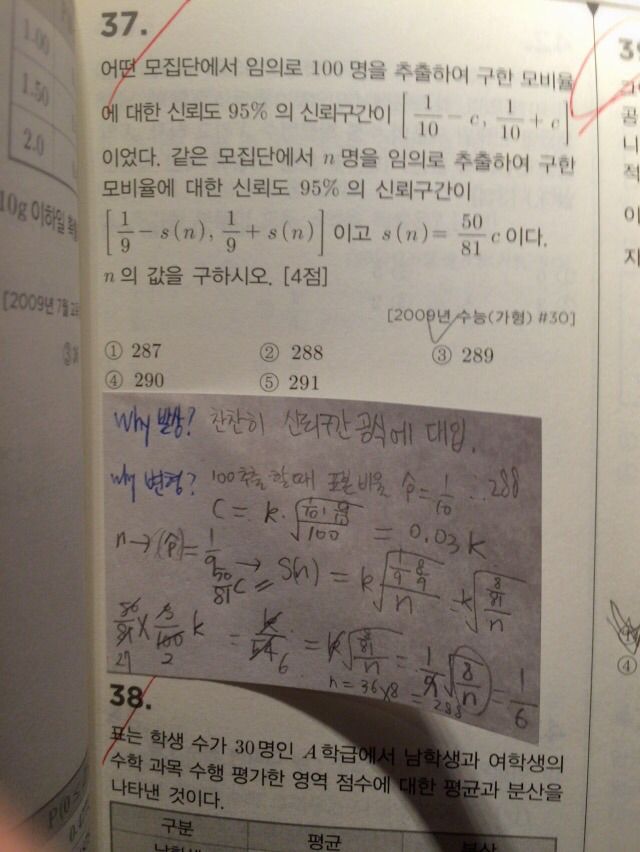 37.
어떤 모집단에서 임의로 100명을 추출하여 구한 모비율
에 대한 신뢰도 95%의 신뢰구간이 [1/10 - c, 1/10 + c]
이었다. 같은 모집단에서 n명을 임의로 추출하여 구한
모비율에 대한 신뢰도 95%의 신뢰구간이
[1/9 - s(n), 1/9 + s(n)]이고 s(n) = 50/81 c이다.
n의 값을 구하시오. [4점]
[2009년 수능(가형) #30]
① 287 ② 288 ③ 289
④ 290 ⑤ 291
Why 발상? 찬찬히 신뢰구간 공식에 대입.
Why 변형? 100추출할때 표본비율 p̂ = 1/10 ∴ 288
C = k·√(1/10·9/10 / 100) = 0.03k
n → p̂ = 1/9
50/81 C = S(n) = k√(1/9 8/9 / n) = k√(8/81 / n)
= k√(8/81 / n) = 1/9 √(8/n) = 1/6
n = 36×8 = 288
38.
표는 학생 수가 30명인 A학급에서 남학생과 여학생의
수학 과목 수행 평가한 영역 점수에 대한 평균과 분산을
나타낸 것이다.
구분 평균 분산
남학생
1.00
1.50
2.0
10g 이하일 확률
[2009년 7월